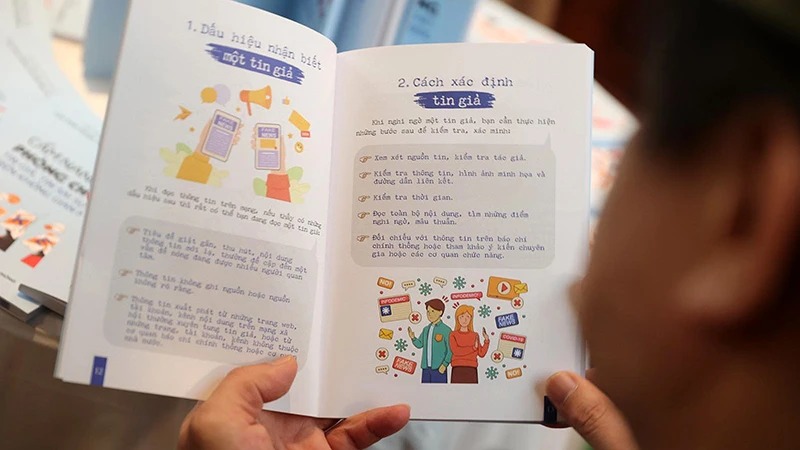 CẨM NANG
PHÒNG CH
1. Dấu hiệu nhận biết
một tin giả
FAKE NEWS
Khi đọc thông tin trên mạng, nếu thấy có những
dấu hiệu sau thì rất có thể bạn đang đọc một tin giả:
Tiêu đề giật gân, thu hút, nội dung
thông tin mới lạ, thường đề cập đến một
vấn đề nóng đang được nhiều người quan
tâm.
Thông tin không ghi nguồn hoặc nguồn
không rõ ràng.
Thông tin xuất phát từ những trang web,
tài khoản, kênh nội dung trên mạng xã
hội thường xuyên tung tin giả, hoặc từ
những trang, tài khoản, kênh không thuộc
cơ quan báo chí chính thống hoặc cơ
nhà nước.
12
2. Cách xác định
tin giả
Khi nghi ngờ một tin giả, bạn cần thực hiện
những bước sau để kiểm tra, xác minh:
Xem xét nguồn tin, kiểm tra tác giả.
Kiểm tra thông tin, hình ảnh minh họa và
đường dẫn liên kết.
Kiểm tra thời gian.
Đọc toàn bộ nội dung, tìm những điểm
nghi ngờ, mâu thuẫn.
Đối chiếu với thông tin trên báo chí
chính thống hoặc tham khảo ý kiến chuyên
gia hoặc các cơ quan chức năng.
NO!
INFODEMIC
INFODEMIC
NO!
FAKE
NEWS
COVID-19
FAKE NEWS